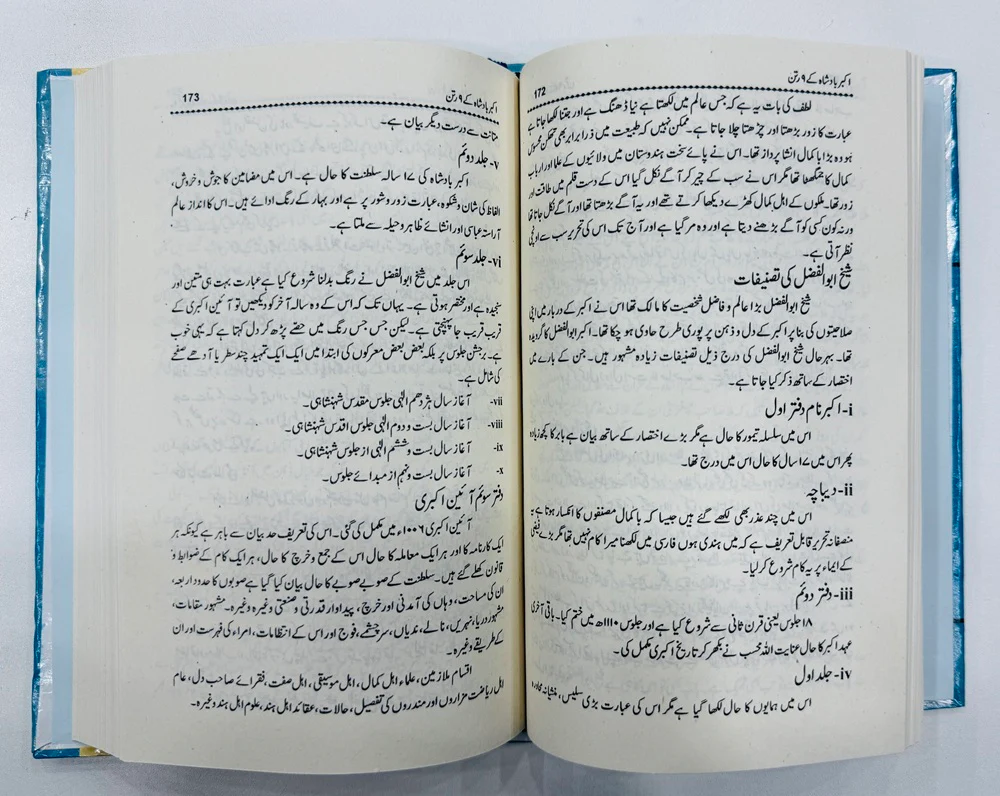 اکبر بادشاہ کے ۹ رتن
172
لطف کی بات یہ ہے کہ جس عالم میں لکھتا ہے نیا ڈھنگ ہے اور جتنا لکھتا جاتا ہے
عبارت کا زور بڑھتا اور چڑھتا چلا جاتا ہے۔ ممکن نہیں کہ طبیعت میں ذرا برابر بھی تھکن محسوس
ہو وہ بڑا با کمال انشا پرداز تھا۔ اس نے پائے تخت ہندوستان میں ولائیوں کے علما اور ارباب
کمال کا جمگھٹا تھا مگر اس نے سب کے چیر کر آگے نکل گیا اس کے دست قلم میں طاقت اور
زور تھا۔ ملکوں کے اہل کمال کھڑے دیکھا کرتے تھے اور یہ آگے بڑھتا تھا اور آگے نکل جاتا تھا
ورنہ کون کسی کو آگے بڑھنے دیتا ہے اور وہ مر گیا ہے اور آج تک اس کی تحریر سب سے اونچی
نظر آتی ہے۔
شیخ ابوالفضل کی تصنیفات
شیخ ابوالفضل بڑا عالم و فاضل شخصیت کا مالک تھا اس نے اکبر کے دربار میں اپنی
صلاحیتوں کی بنا پر اکبر کے دل و ذہن پر پوری طرح حاوی ہو چکا تھا۔ اکبر ابوالفضل کا گرویدہ
تھا۔ بہرحال شیخ ابوالفضل کی درج ذیل تصنیفات زیادہ مشہور ہیں۔ جن کے بارے میں
اختصار کے ساتھ ذکر کیا جاتا ہے۔
i- اکبر نام دفتر اول
اس میں سلسلہ تیمور کا حال ہے مگر بڑے اختصار کے ساتھ بیان ہے بابر کا کچھ زیادہ
پھر اس میں ۱۷ سال کا حال اس میں درج تھا۔
ii- دیباچہ
اس میں چند عذر بھی لکھے گئے ہیں جیسا کہ باکمال مصنفوں کا انکسار ہوتا ہے یہ
منصفانہ تحریر قابل تعریف ہے کہ میں ہندی ہوں فارسی میں لکھنا میرا کام نہیں تھا مگر بڑے فیضی
کے ایماء پر یہ کام شروع کر لیا۔
iii- دفتر دوئم
۱۸ جلوس یعنی قرن ثانی سے شروع کیا ہے اور جلوس ۱۱۱۰ھ میں ختم کیا۔ باقی آخری
عہد اکبر کا حال عنایت اللہ محسب نے بکھر کر تاریخ اکبری مکمل کی۔
iv- جلد اول
اس میں ہمایوں کا حال لکھا گیا ہے مگر اس کی عبارت بڑی سلیس، منشیانہ محاورہ
اکبر بادشاہ کے ۹ رتن
173
متانت سے درست دیگر بیان ہے۔
v- جلد دوئم
اکبر بادشاہ کی ۱۷ سالہ سلطنت کا حال ہے۔ اس میں مضامین کا جوش و خروش،
الفاظ کی شان و شکوہ، عبارت زور و شور پر ہے اور بہار کے رنگ اوائے ہیں۔ اس کا انداز عالم
آراستہ عباسی اور انشائے طاہر وحیلہ سے ملتا ہے۔
vi- جلد سوئم
اس جلد میں شیخ ابوالفضل نے رنگ بدلنا شروع کیا ہے عبارت بہت ہی متین اور
سنجیدہ ہے اور مختصر ہوتی ہے۔ یہاں تک کہ اس کے وہ سالہ آخر کو دیکھیں تو آئین اکبری کے
قریب قریب جا پہنچتی ہے۔ لیکن جس جس رنگ میں حصّے پڑھ کر دل کہتا ہے کہ یہی خوب
ہے۔ ہر جشن جلوس پر بلکہ بعض بعض معرکوں کی ابتدا میں ایک ایک تمہید چند سطر یا آدھے صفحے
کی شامل ہے۔
vii- آغاز سال ہژدھم الٰہی جلوس مقدس شہنشاہی۔
viii- آغاز سال بست و دوم الٰہی جلوس اقدس شہنشاہی۔
ix- آغاز سال بست و ششم الٰہی از جلوس شہنشاہی۔
x- آغاز سال بست و نہم از مبدائے جلوس۔
دفتر سوئم آئین اکبری
آئین اکبری ۱۰۰۶ء میں مکمل کی گئی۔ اس کی تعریف حد بیان سے باہر ہے کیونکہ ہر
ایک کارنامہ کا اور ہر ایک معاملہ کا حال اس کے جمع و خرچ کا حال، ہر ایک کام کے ضوابط و
قانون کھلے گئے ہیں۔ سلطنت کے صوبے صوبے کا حال بیان کیا گیا ہے صوبوں کا حدود اربعہ،
ان کی مساحت، وہاں کی آمدنی اور خرچ، پیداوار قدرتی و صنعتی وغیرہ وغیرہ۔ مشہور مقامات،
مشہور دریا، نہریں، نالے، ندیاں، سرچشمے، فوج اور اس کے انتظامات، امراء کی فہرست اور ان
کے طریقے وغیرہ۔
اقسام ملازمین، علماء اہل کمال، اہل موسیقی، اہل صفت، فقرائے صاحب دل، عام
اہل ریاضت مزاروں اور مندروں کی تفصیل، حالات، عقائد اہل ہند، علوم اہل ہند وغیرہ۔